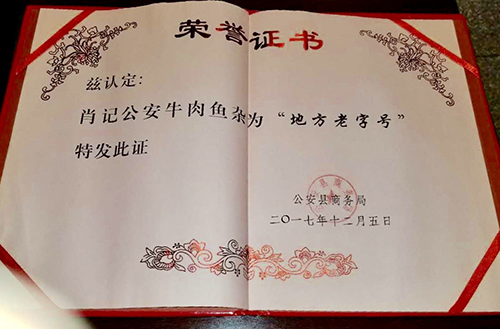 荣誉证书
兹认定:
肖记公安牛肉鱼杂为“地方老字号”
特发此证
公安县商务局
二〇一七年十二月五日